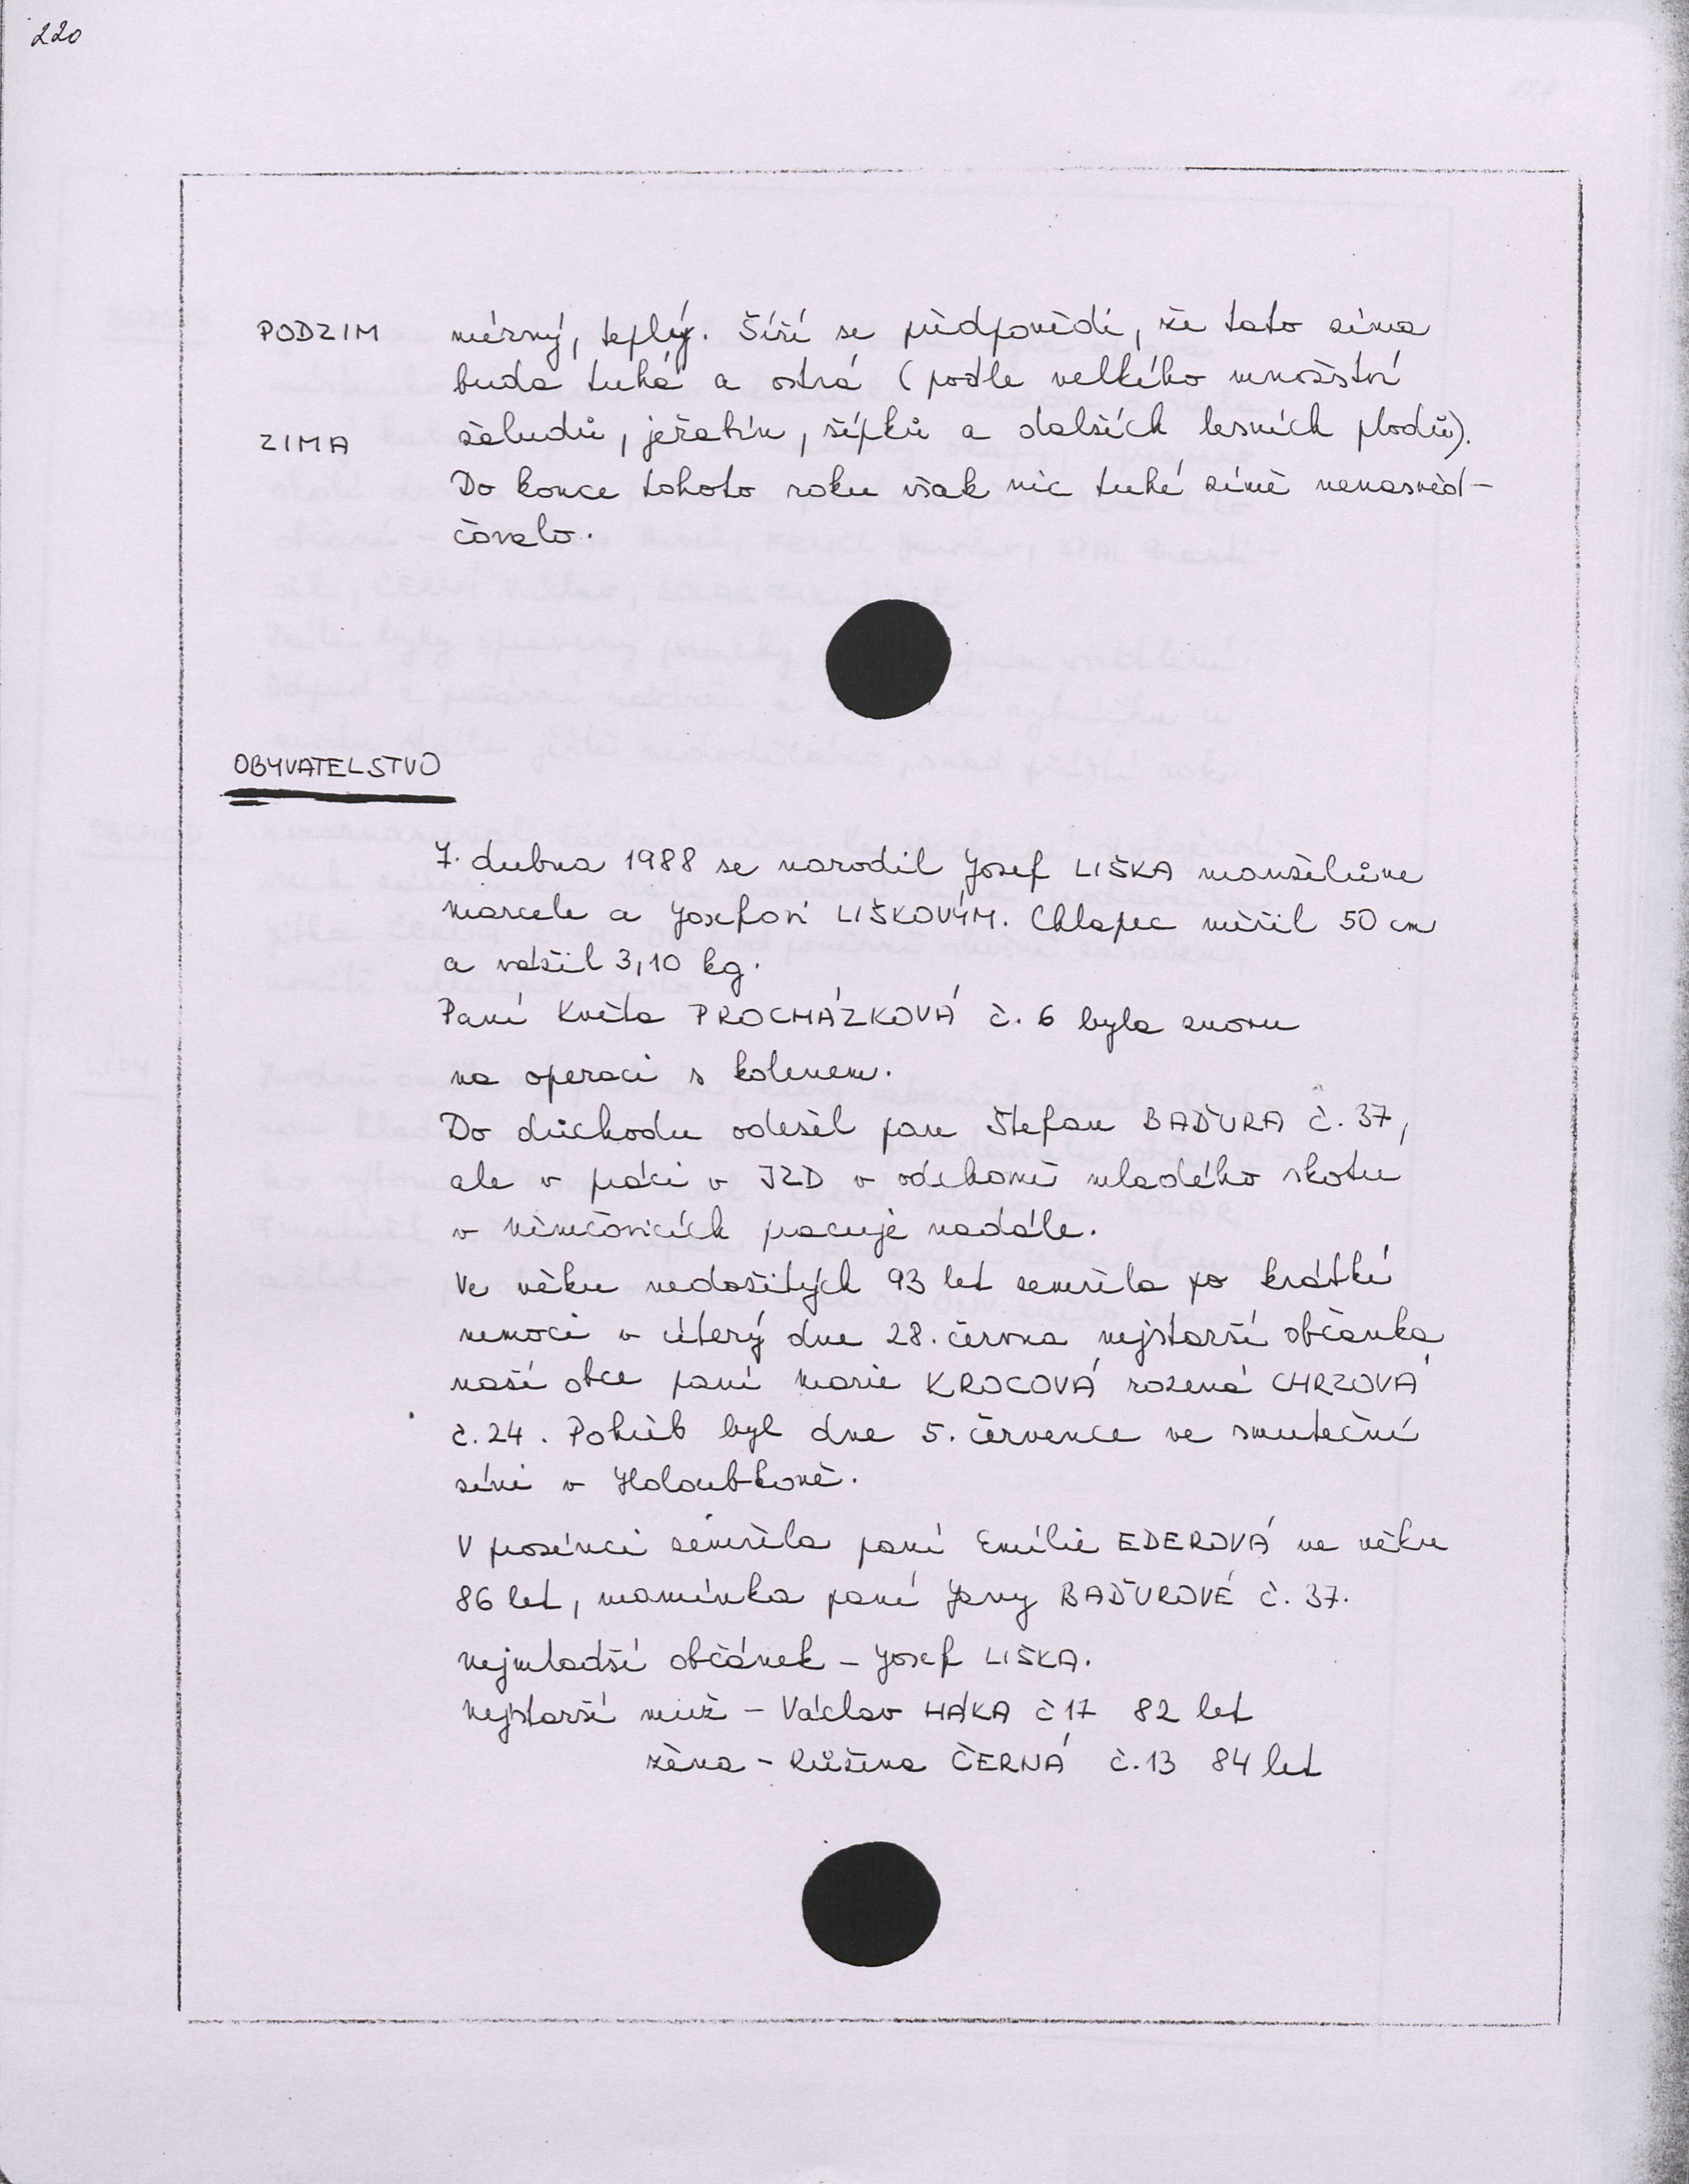 220
PODZIM mírný, teplý. Šíří se předpovědi, že tato zima
bude tuhá a ostrá (podle velkého množství
ZIMA žaludů, jeřabin, šípků a dalších lesních plodů).
Do konce tohoto roku však nic tuhé zimě nenasvěd-
čovalo.
OBYVATELSTVO
7. dubna 1988 se narodil Josef LIŠKA manželům
Marcele a Josefovi LIŠKOVÝM. Chlapec měřil 50 cm
a vážil 3,10 kg.
Paní Květa PROCHÁZKOVÁ č. 6 byla znovu
na operaci s kolenem.
Do důchodu odešel pan Štefan BAĎURA č. 37,
ale v práci v JZD v odchovně mladého skotu
v Němčovicích pracuje nadále.
Ve věku nedožitých 93 let zemřela po krátké
nemoci v úterý dne 28. června nejstarší občanka
naší obce paní Marie KROCOVÁ rozená CHRZOVÁ
č. 24. Pohřeb byl dne 5. července ve smuteční
síni v Holoubkově.
V prosinci zemřela paní Emílie EDEROVÁ ve věku
86 let, maminka paní Jany BAĎUROVÉ č. 37.
Nejmladší občánek – Josef LIŠKA.
Nejstarší muž – Václav HÁKA č 17 82 let
žena – Růžena ČERNÁ č. 13 84 let